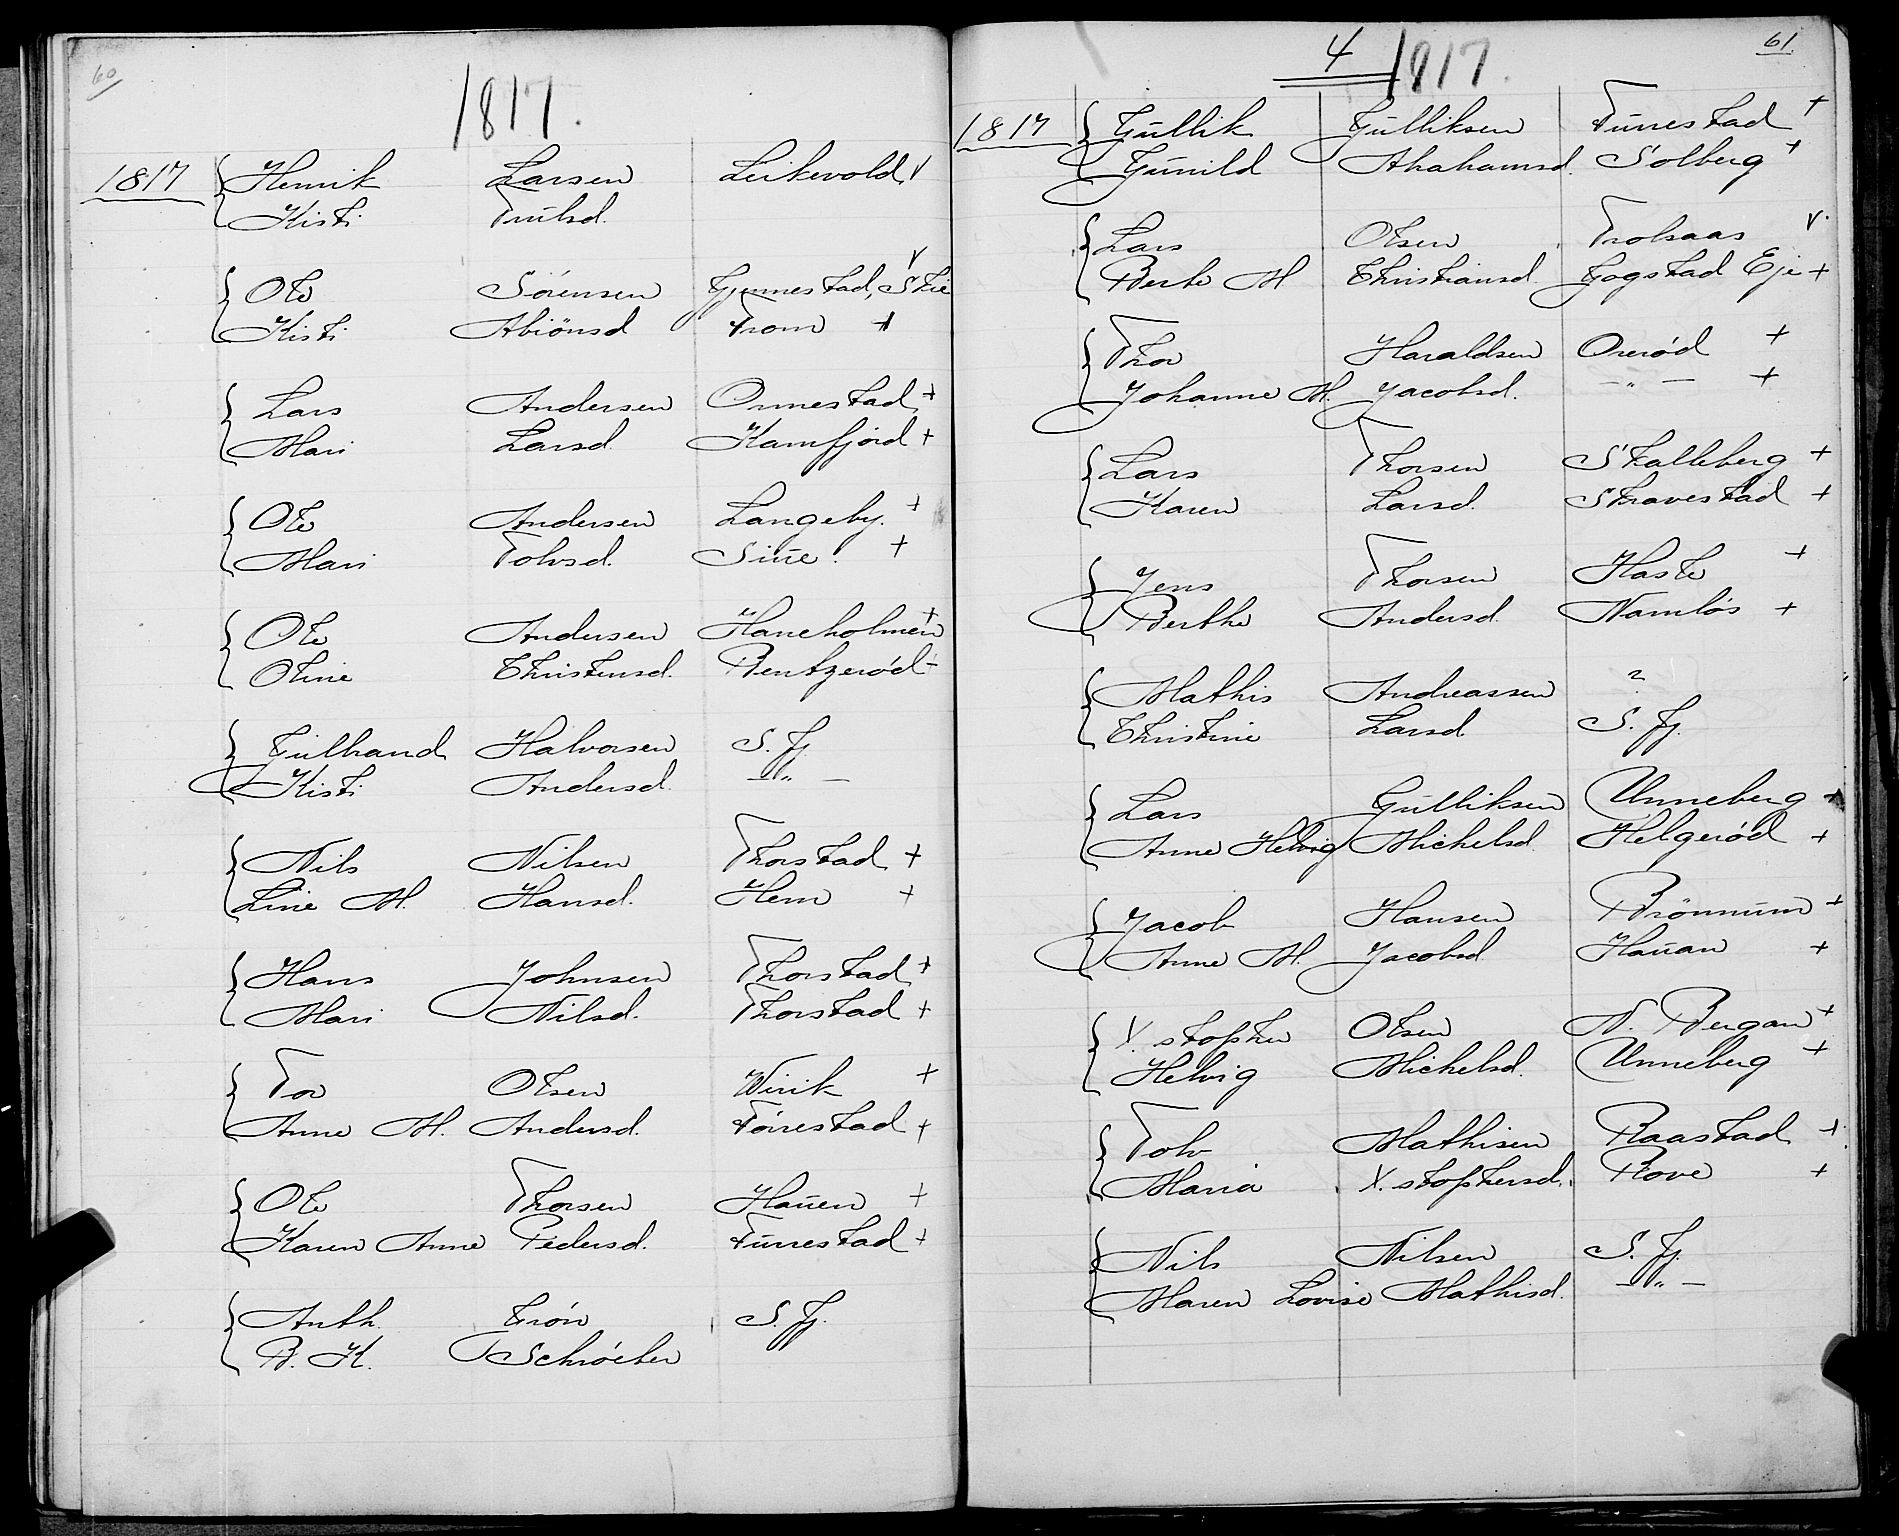 60
1817.
1817 Henrik Larsen Leikevold. v
Kisti Trulsd.
Ole Sörensen Gjennestad, Skie v
Kisti Abiönsd From +
Lars Andersen Ormestad +
Mari Larsd. Kamfjord +
Ole Andersen Langeby. +
Mari Tolvsd. Süe. +
Ole Andersen Haneholmen +
Oline Christensd. Bentzerød +
Gulbrand Halvorsen S. Fj.
Kisti Andersd. — „ —
Nils Nilsen Thorstad +
Line M. Hansd. Hem +
Hans Johnsen Thorstad +
Mari Nilsd. Thorstad +
Tor Olsen Wirik +
Anne M. Andersd. Förrestad +
Ole Thorsen Hauen +
Karen Anne Pedersd. Furrestad +
Anth. Grön S. Fj.
B. K. Schröeter
61.
4 1817.
1817 Gullik Gulliksen Furrestad +
Gunild Abahamsd. Solberg +
Lars Olsen Trolsaas v.
Berte M Christiansd. Gogstad Eje +
Thor Haraldsen Orerød +
Johanne M. Jacobsd. — „ — +
Lars Thorsen Skalleberg +
Karen Larsd. Skravestad +
Jens Thorsen Hasle +
Berthe Andersd. Namløs +
Mathis Andreassen ?
Christine Larsd. S. Fj.
Lars Gulliksen Unneberg +
Anne Helvig Michelsd. Helgerød +
Jacob Hansen Brönnum +
Anne M. Jacobsd. Hauan +
X. stopher Olsen N. Bergan +
Helvig Michelsd. Unneberg +
Tolv Mathisen Raastad +
Maria X. stophersd. Rove +
Nils Nilsen S. Fj.
Maren Lovise Mathisd. — „ —